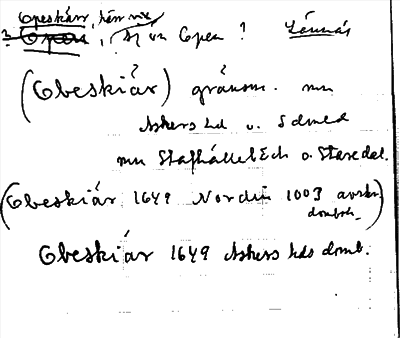 Opeskärr, kärr nv
? Open, Sj. o. Open ? Lännäs
(Obeskiår) gränsm. mn
Askers hd o. Sdmld
mn Stafhället Ech o. Staxedal.
(Obeskiår 1649 Nordin 1003 avskr.
domboh.)
Obeskiår 1649 Askers hds domb.